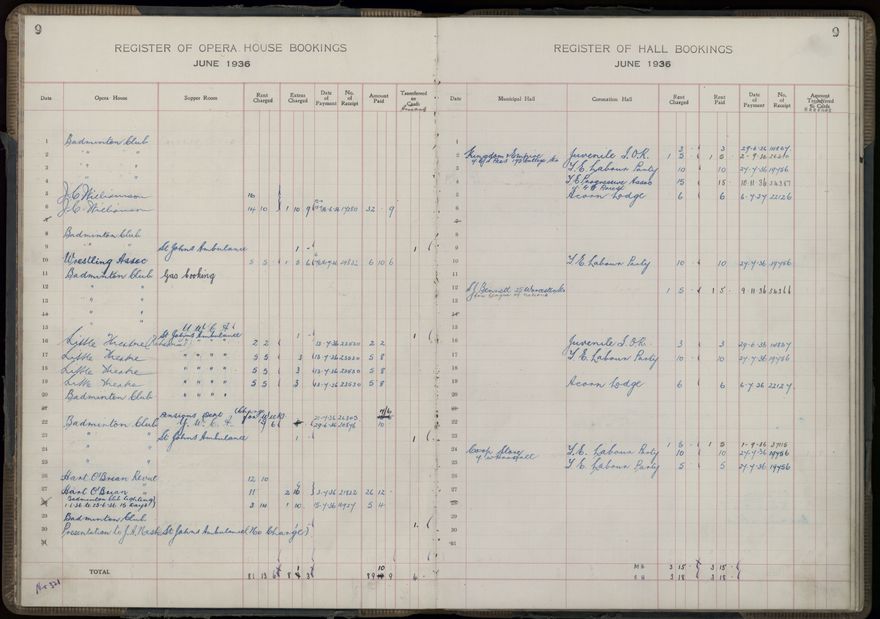 9
REGISTER OF OPERA HOUSE BOOKINGS
JUNE 1936
Date Opera House Supper Room Rent Charged Extras Charged Date of Payment No. of Receipt Amount Paid Transferred on Cash
1 Badminton Club
2 " "
3 " "
4 " "
5 J.C. Williamson 10
6 J.C. Williamson 14 10 1 10 9 32 - 9
7
8 Badminton Club
9 " " St Johns Ambulance 1 - 1
10 Wrestling Assoc 5 5 1 5 6 6 10 6
11 Badminton Club Gas Cooking
12 " "
13 " "
14 " "
15 " " Y.W.C.A.
16 Little Theatre St Johns Ambulance 1 - 1
Rehearsal " " " 2 2 13-7-36 23530 2 2
17 Little Theatre " " " " 5 5 3 13-7-36 23530 5 8
18 Little Theatre " " " " 5 5 3 13-7-36 23530 5 8
19 Little Theatre " " " " 5 5 3 13-7-36 23530 5 8
20 Badminton Club " " " "
21 Pensions Dept 21-7-36 26303 7/6
22 Badminton Club Y.W.C.A. 29-6-36 20576 10
23 " " St Johns Ambulance 1 1
24 " "
25 " "
26 Hart O'Brian Revue 12 10
27 Hart O'Brian " 11 2 10 3-7-36 21822 26 12 -
28 Badminton Club lighting
1-6-36 to 25-6-36 15 days 3 14 1 10 15-7-36 5 4
29 Badminton Club
30 Presentation to J.A. Nash St Johns Ambulance (No Charge) 1
31
TOTAL 81 13 6 8 3 89 10 9 6 -
9
REGISTER OF HALL BOOKINGS
JUNE 1936
Date Municipal Hall Coronation Hall Rent Charged Rent Paid Date of Payment No. of Receipt Amount Transferred to Cash
1 3 3 29-6-36 14827
2 Kingdom & Empire Juvenile I.O.R. 1 5 1 5 2-9-36
3 I.E. Labour Party 10 10 27-7-36 19756
4 I.E. Progressive Assoc
5 15 15 10-11-36 34357
6 Acorn Lodge 6 6 6-7-37 22126
7
8
9
10 I.E. Labour Party 10 10 27-7-36 19756
11
12 L.J. Bennett 1 5 1 5 9-11-36
for League of Nations
13
14
15
16 Juvenile I.O.R. 3 3 29-6-36 14827
17 I.E. Labour Party 10 10 27-7-36 19756
18
19 Acorn Lodge 6 6 6-7-36 22127
20
21
22
23 1 5 1 5 1-9-36 27115
24 Coop Store I.E. Labour Party 10 10 27-7-36 19756
25 I.E. Labour Party 5 5 27-7-36 19756
26
27
28
29
30
31
M H 3 15 - 3 15 -
3 18 3 18